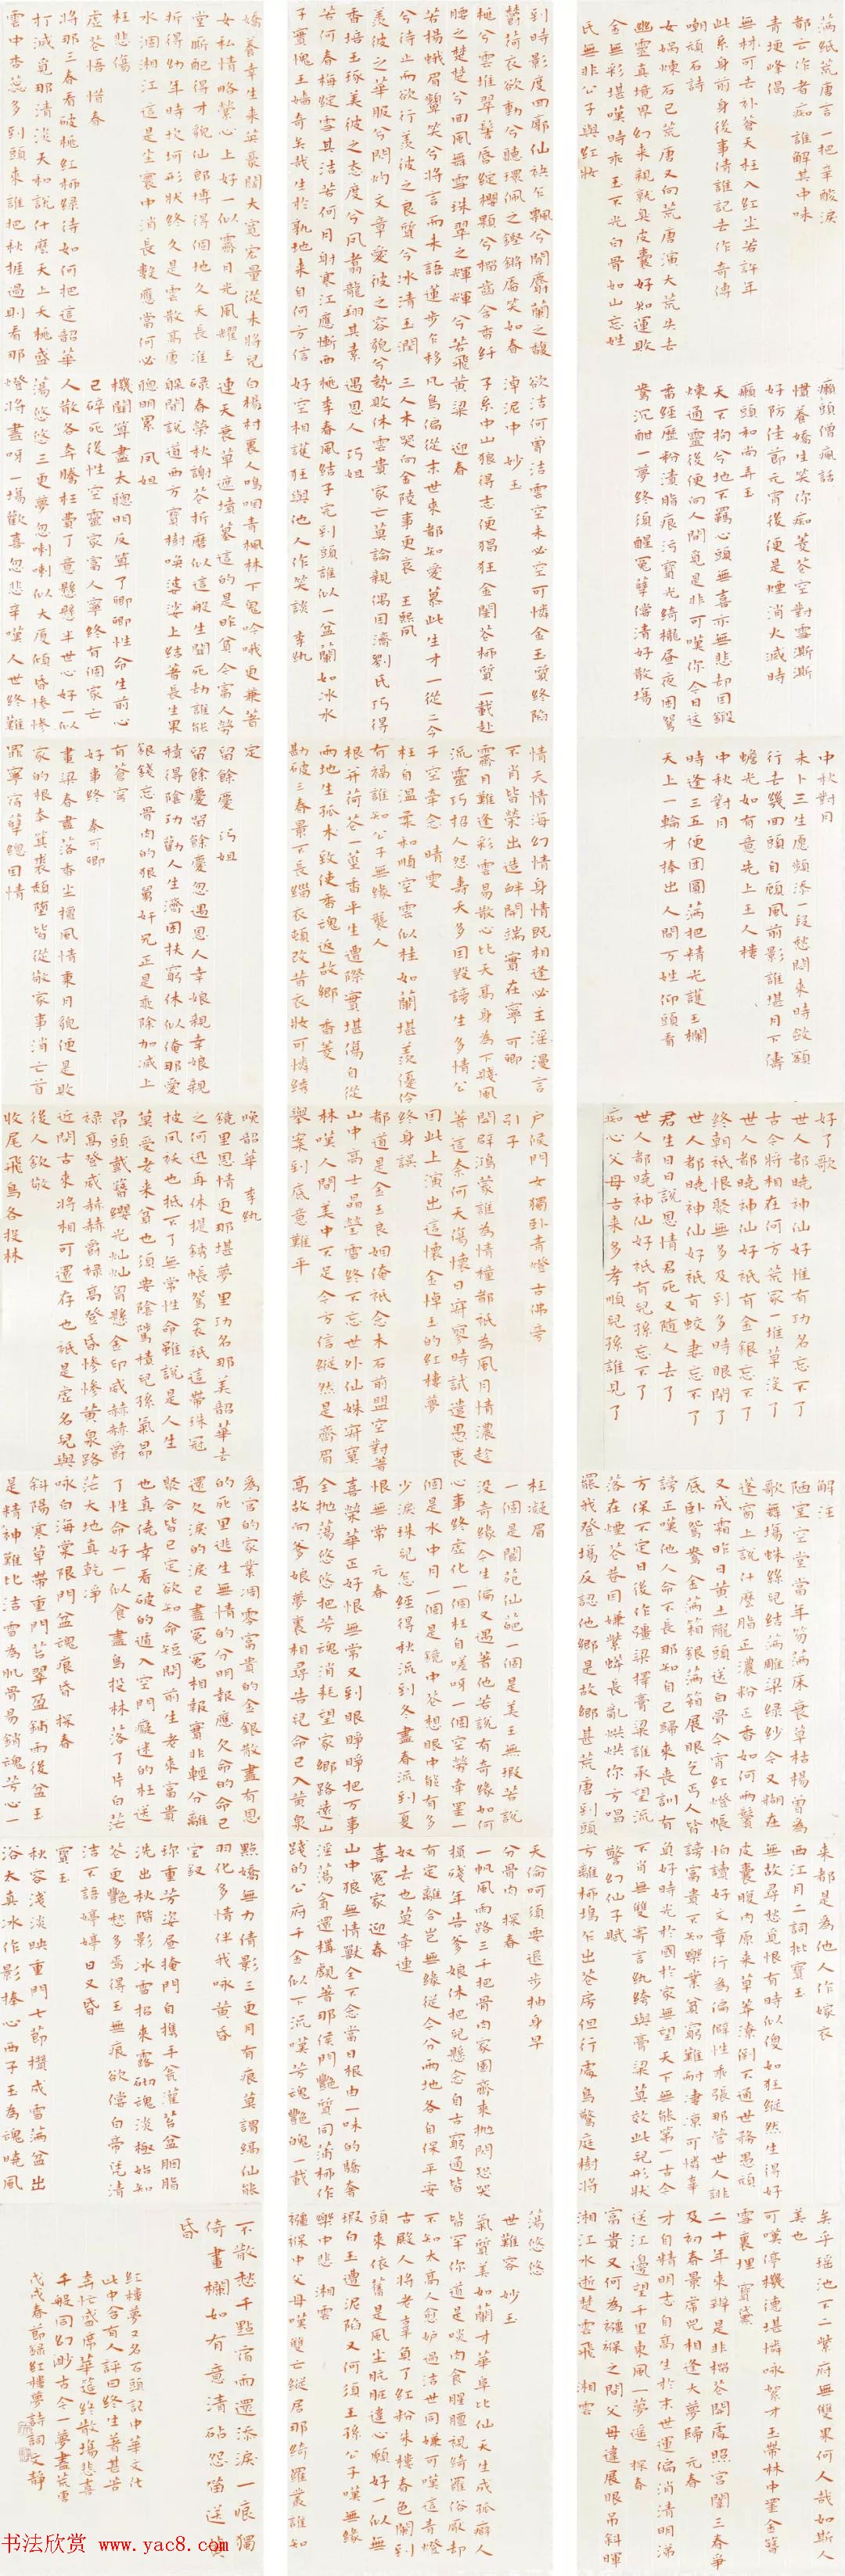 滿紙荒唐言一把辛酸淚
都云作者痴誰解其中味
青埂峰偈
無材可去補蒼天枉入紅塵若許年
此系身前身後事倩誰記去作奇傳
嘲頑石詩
女媧煉石已荒唐又向荒唐演大荒失去
幽靈真境界幻來親就臭皮囊好知運敗
金無彩堪嘆時乖玉不光白骨如山忘姓
氏無非公子與紅妝
癩頭僧瘋話
慣養嬌生笑你痴菱花空對雪澌澌
好防佳節元宵後便是煙消火滅時
癩頭和尚弄玉
天不拘兮地不羈心頭無喜亦無悲卻因鍛
煉通靈後便向人間覓是非可嘆你今日這
番經歷粉漬脂痕污寶光綺櫳晝夜困鴛
鴦沉酣一夢終須醒冤孽償清好散場
中秋對月
未卜三生愿頻添一段愁悶來時斂額
行去幾回頭自顧風前影誰堪月下儔
蟾光如有意先上玉人樓
中秋對月
時逢三五便團圓滿把晴光護玉欄
天上一輪才捧出人間萬姓仰頭看
好了歌
世人都曉神仙好惟有功名忘不了
古今將相在何方荒冢一堆草沒了
世人都曉神仙好祇有金銀忘不了
終朝祇恨聚無多及到多時眼閉了
世人都曉神仙好祇有姣妻忘不了
君生日日說恩情君死又隨人去了
世人都曉神仙好祇有兒孫忘不了
痴心父母古來多孝順兒孫誰見了
解注
陋室空堂當年笏滿床衰草枯楊曾為
歌舞場蛛絲兒結滿雕梁綠紗今又糊在
蓬窗上說什麼脂正濃粉正香如何兩鬢
又成霜昨日黃土隴頭送白骨今宵紅燈帳
底臥鴛鴦金滿箱銀滿箱展眼乞丐人皆
謗正嘆他人命不長那知自己歸來喪訓有
方保不定日後作強梁擇膏粱誰承望流
落在煙花巷因嫌紗帽小致使鎖枷扛
罷我登場反認他鄉是故鄉甚荒唐到頭
來都是為他人作嫁衣
西江月二詞批寶玉
無故尋愁覓恨有時似傻如狂縱然生得好
皮囊腹內原來草莽潦倒不通世務愚頑
怕讀好文章行為偏僻性乖張那管世人誹
謗富貴不知樂業貧窮難耐凄涼可憐辜
負好時光於國於家無望天下無能第一古今
不肖無雙寄言紈絝與膏粱莫效此兒形狀
警幻仙子賦
方離柳塢乍出花房但行處鳥驚庭樹將
矣乎瑤池不二紫府無雙果何人哉如斯之
美也
可嘆停機德堪憐詠絮才玉帶林中掛金簪
雪裏埋 寶黛
二十年來辨是非榴花開處照宮闈三春爭
及初春景虎兕相逢大夢歸 元春
才自精明志自高生於末世運偏消清明涕
送江邊望千里東風一夢遙 探春
富貴又何為襁褓之間父母違展眼吊斜暉
湘江水逝楚雲飛 湘雲
到時影度回廊仙袂乍飄兮聞麝蘭之馥
郁荷衣欲動兮聽環佩之鏗鏘靨笑如春
桃兮雲堆翠髻唇綻櫻顆兮榴齒含香纖
腰之楚楚兮回風舞雪珠翠之輝輝兮若飛
若揚蛾眉顰笑兮將言而未語蓮步乍移
兮待止而欲行羨彼之良質兮冰清玉潤
羨彼之華服兮閃灼文章愛彼之容貌兮
香培玉琢美彼之態度兮鳳翥龍翔其素
若何春梅綻雪其潔若何
月射寒江應慚西
子實愧王嬙奇矣哉生於孰地來自何方信
欲潔何曾潔雲空未必空可憐金玉質終陷
淖泥中 妙玉
子系中山狼得志便猖狂金閨花柳質一載赴
黃粱 迎春
凡鳥偏從末世來都知愛慕此生才一從二令
三人木哭向金陵事更哀 王熙鳳
勢敗休雲貴家亡莫論親偶因濟劉氏巧得
遇恩人 巧姐
桃李春風結子完到頭誰似一盆蘭如冰水
好空相妒枉與他人作笑談 李紈
情天情海幻情身情既相逢必主淫漫言
不肖皆榮出造釁開端實在寧 可卿
霽月難逢彩雲易散心比天高身為下賤風
流靈巧招人怨壽夭多因毀謗生多情公
子空牽念 晴雯
枉自溫柔和順空雲似桂如蘭堪羨優伶
有福誰知公子無緣 襲人
根并荷花一莖香平生遭際實堪傷自從
兩地生孤木致使香魂返故鄉 香菱
勘破三春景不長緇衣頓改昔衣妝可憐繡
戶侯門女獨臥青燈古佛旁
引子
開辟鴻蒙誰為情種都祇為風月情濃趁
著這奈何天傷懷日寂寥時試遣愚衷
因此上演出這懷金悼玉的紅樓夢
終身誤
都道是金玉良姻俺祇念木石前盟空對著
山中高士晶瑩雪終不忘世外仙姝寂寞
林嘆人間美中不足今方信縱然是齊眉
舉案到底意難平
枉凝眉
一個是閬苑仙葩一個是美玉無瑕若說
沒奇緣今生偏又遇著他若說有奇緣如何
心事終虛化一個枉自嗟呀一個空勞牽掛一
個是水中月一個是鏡中花想眼中能有多
少淚珠兒怎經得秋流到冬盡春流到夏
恨無常 元春
喜榮華正好恨無常又到眼睜睜把萬事
全拋蕩悠悠把芳魂消耗望家鄉路遠山
高故向爹娘夢裏相尋告兒命已入黃泉
天倫呵須要退步抽身早
分骨肉 探春
一帆風雨路三千把骨肉家園齊來拋閃恐哭
損殘年告爹娘休把兒懸念自古窮通皆
有定離合豈無緣從今分兩地各自保平安
奴去也莫牽連
喜冤家 迎春
山中狼無情獸全不念當日根由一味的驕奢
淫蕩貪還構覷著那侯門艷質同蒲柳作
踐的公府千金似下流嘆芳魂艷魄一載
蕩悠悠
世難容 妙玉
氣質美如蘭才華阜比仙天生成孤癖人
皆罕你道是啖肉食腥膻視綺羅俗厭卻
不知太高人愈妒過潔世同嫌可嘆這青燈
古殿人將老辜負了紅粉朱樓春色闌到
頭來依舊是風塵骯髒違心願好一似無
瑕白玉遭泥陷又何須王孫公子嘆無緣
樂中悲 湘雲
襁褓中父母嘆雙亡縱居那綺羅叢誰知
嬌養幸生來英豪闊大寬宏量從未將兒
女私情略縈心上好一似霽月光風耀玉
堂廝配得才貌仙郎博得個地久天長准
折得幼年時坎坷形狀終久是雲散高唐
水涸湘江這是塵寰中消長數應當何必
枉悲傷
虛花悟 惜春
將那三春看破桃紅柳綠待如何把這韶華
打滅覓那清淡天和說什麼天上夭桃盛
雲中杏蕊多到頭來誰把秋捱過則看那
白楊村裏人嗚咽青楓林下鬼吟哦更兼著
連天衰草遮墳墓這的是昨貧今富人勞
碌春榮秋謝花折磨似這般生關死劫誰能
躲聞說道西方寶樹喚婆娑上結著長生果
聰明累 鳳姐
機關算盡太聰明反算了卿卿性命生前心
已碎死後性空靈家富人寧終有個家亡
人散各奔騰枉費了意懸懸半世心好一似
蕩悠悠三更夢忽喇喇似大廈傾昏慘慘
燈將盡呀一場歡喜忽悲辛嘆人世終難
定
留餘慶 巧姐
留餘慶留餘慶忽遇恩人幸娘親幸娘親
積得陰功勸人生濟困扶窮休似俺那愛
銀錢忘骨肉的狠舅奸兄正是乘除加減上
有蒼穹
好事終 秦可卿
畫梁春盡落香塵擅風情秉月貌便是敗
家的根本箕裘頹墮皆從敬家事消亡首
罪寧宿孽總因情
晚韶華 李紈
鏡里恩情更那堪夢里功名那美韶華去
之何迅再休提繡帳鴛衾祇這帶珠冠
披鳳襖也抵不了無常性命雖說是人生
莫受老來貧也須要陰騭積兒孫氣昂
昂頭戴簪纓光燦燦胸懸金印威赫赫爵
祿高登威赫赫爵祿高登昏慘慘黃泉路
近問古來將相可還存也祇是虛名兒與
後人欽敬
收尾飛鳥各投林
為官的家業凋零富貴的金銀散盡有恩
的死里逃生無情的分明報應欠命的命已
還欠淚的淚已盡冤冤相報實非輕分離
聚合皆已定欲知命短問前生老來富貴
也真僥幸看破的遁入空門癡迷的枉送
了性命好一似食盡鳥投林落了片白茫
茫大地真乾淨
詠白海棠限門盆魂痕昏 探春
斜陽寒草帶重門苔翠盈鋪雨後盆玉
是精神難比潔雪為肌骨易銷魂芳心一
點嬌無力倩影三更月有痕莫謂縞仙能
羽化多情伴我詠黃昏
寶釵
珍重芳姿晝掩門自攜手瓮灌苔盆胭脂
洗出秋階影冰雪招來露砌魂淡極始知
花更艷愁多焉得玉無痕欲償白帝憑清
潔不語婷婷日又昏
寶玉
秋容淺淡映重門七節攢成雪滿盆出
浴太真冰作影捧心西子玉為魂曉風
不散愁千點宿雨還添淚一痕獨
倚畫欄如有意清砧怨笛送黃
昏
紅樓夢又名石頭記中華文化
戊戌春節錄紅樓夢詩詞文靜
书法欣赏 www.yac8.com